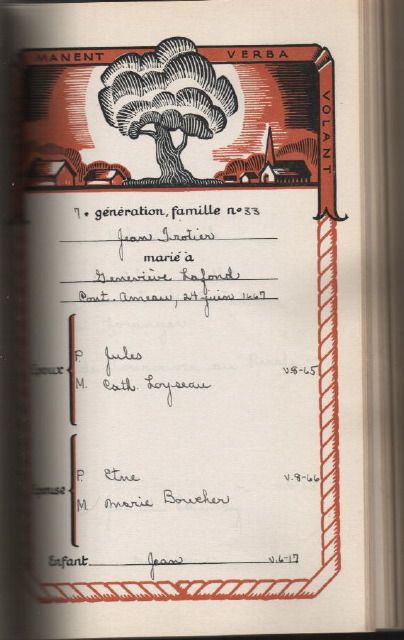 MANENT VERBA VOLANT
7e génération, famille no 33
Jean Trotier
marié à
Geneviève Lafond
Cont. Ameau, 24 juin 1667
Époux
P. Jules v.8-65
M. Cath. Loyseau
Épouse
P. Etne v.8-66
M. Marie Boucher
Enfant Jean v.6-17